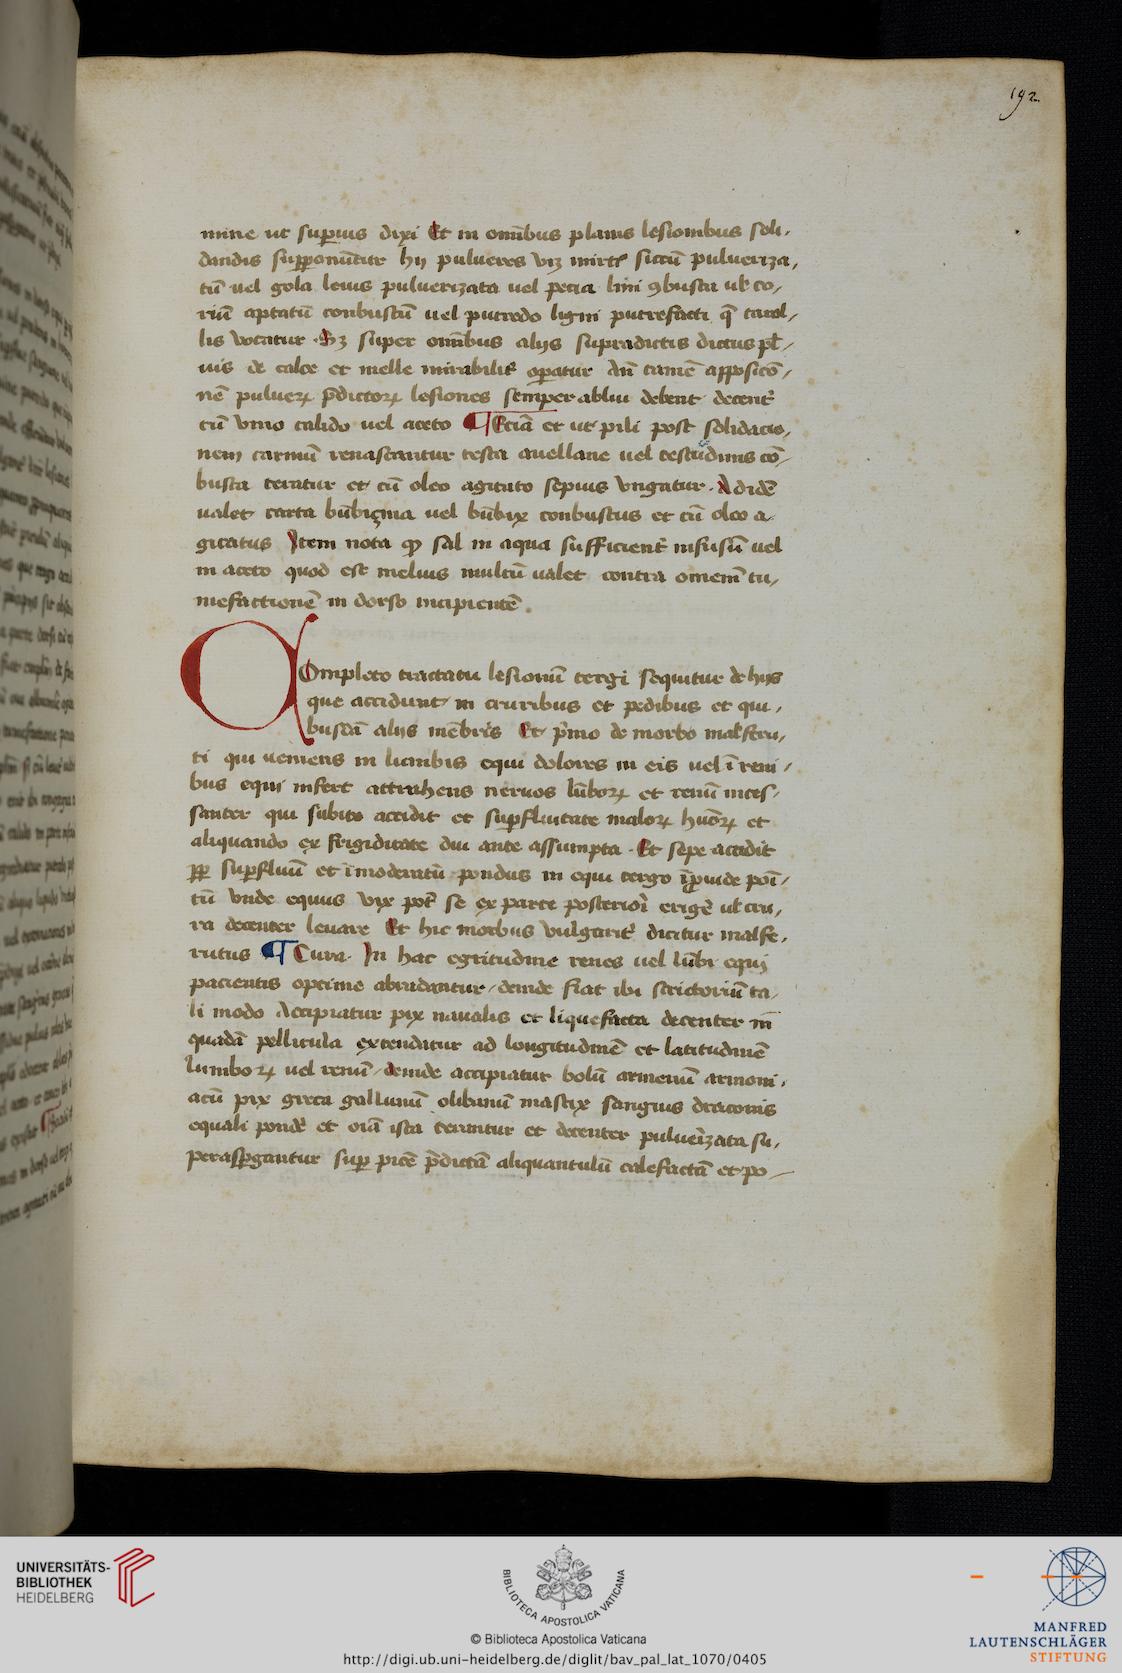 192
mine ut supius dixi Et in om̄ibus planis lesionibus soli,
dandis supponūtur hij pulveres viz mirt9 siccū pulveriza,
tū vel gola levis pulverizata vel pecia lini 9busta vl' co,
riū aptatū conbustū vel putredo ligni putrefacti q̄ tarol,
lis vocatur. S3 super om̄ibus alijs supradictis dictus pl̄,
vis de calce et melle mirabilit' opatur dn̄ tamē apposicō,
nē pulverꝝ p̄dictorꝝ lesiones semper ablui debent decent'
cū vino calido vel aceto ¶ Eciā et ut pili post solidacio,
nem carniū renascantur testa avellane vel testudinis cō,
busta teratur et cū oleo agitato sepius vngatur. Ad idē
valet carta būbicina vel būbix conbustus et cū oleo a,
gitatus Item nota ꝙ sal in aqua sufficient' infusū vel
in aceto quod est melius multū valet contra omem̄ tu,
mefactionē in dorso incipientē.
COmpleto tractatu lesionū tergi sequitur de hijs
que accidunt in cruribus et pedibus et qui,
busdā alijs mēbris Et p'mo de morbo malferu,
ti qui veniens in lumbis equi dolores in eis vel ī reni,
bus equi infert attrahens nervos lūborꝝ et renū inces,
santer qui subito accidit et supfluitate malorꝝ huōrꝝ et
aliquando ex frigiditate diu ante assumpta. Et sepe accidit
ꝓp supfluū et īmoderatū pondus in equi tergo īprovide poī,
tū vnde equus vix pot' se ex parte posteriori erigē vl' cru,
ra decenter levare Et hic morbus vulgarit' dicitur malfe,
rutus ¶ Cura. In hac egritudine renes vel lūbi equi
pacientis optime abradantur, deinde fiat ibi strictoriū ta,
li modo Accipiatur pix navalis et liquefacta decenter in
quadā pellicula extendatur ad longitudinē et latitudinē
lumborꝝ vel renū, deinde accipiatur bolū armenū armoni,
acū pix greca galbanū olibanū mastix sanguis draconis
equali pond' et oīa ista terantur et decenter pulverizata su,
peraspgantur sup picē p̄dictā aliquantulū calefactā et po,
UNIVERSITÄTS-
BIBLIOTHEK
HEIDELBERG
BIBLIOTECA APOSTOLICA VATICANA
© Biblioteca Apostolica Vaticana
http://digi.ub.uni-heidelberg.de/diglit/bav_pal_lat_1070/0405
MANFRED
LAUTENSCHLÄGER
STIFTUNG